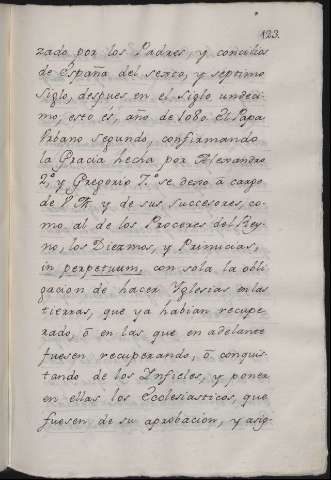 123.
zado por los Padres, y concilios
de España del sexto, y septimo
Siglo, despues, en el Siglo undeci-
mo, esto és, año de 1080. El Papa
Urbano segundo, confirmando
la Gracia hecha por Alexandro
2.º y Gregorio 7.º se dexo â cargo
de V. M. y de sus succesores, co-
mo al de los Proceres del Rey-
no, los Diezmos, y Primicias,
in perpetuum, con sola la obli-
gacion de hacer Yglesias en las
tierras, que ya habian recupe-
rado, ô en las que en adelante
fuesen recuperando, ô conquis-
tando de los Infieles, y poner
en ellas los Ecclesiasticos, que
fuesen de su aprobacion, y asig-